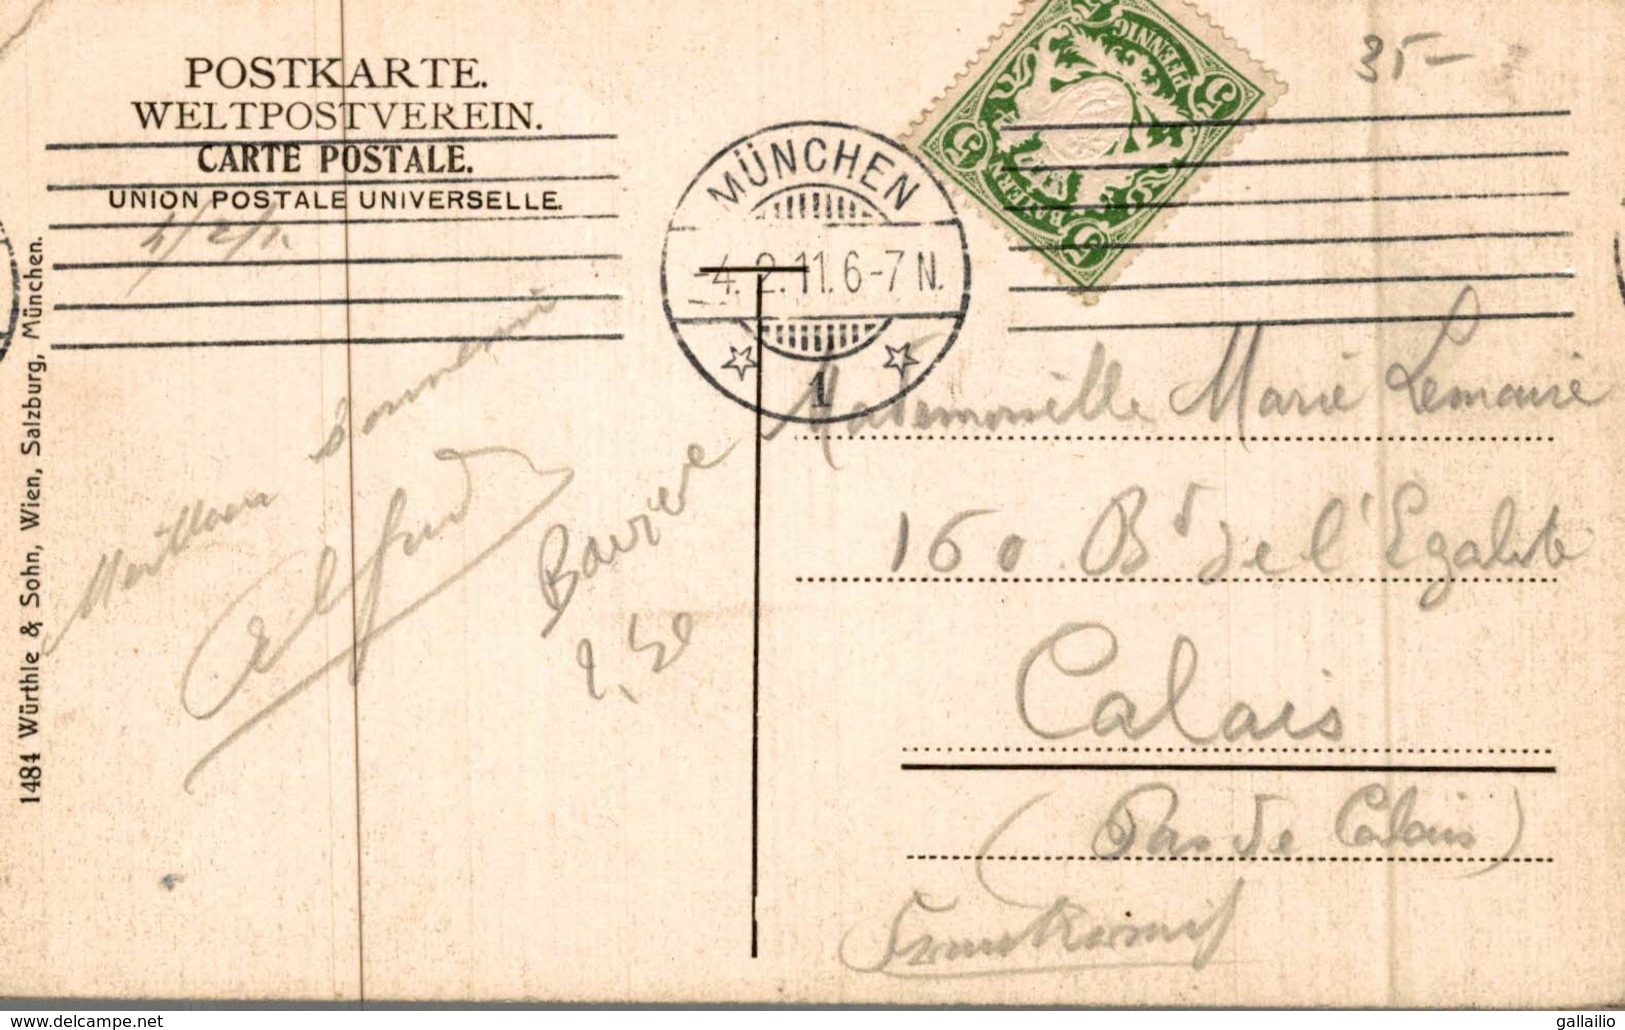 POSTKARTE.
WELTPOSTVEREIN.
CARTE POSTALE.
UNION POSTALE UNIVERSELLE.
1484 Würthle & Sohn, Wien, Salzburg, München.
MÜNCHEN
-4.2.11.6-7 N.
1
5
5
5
5
PFENNIG
BAYERN
35-
4/2/11
souvenir
Alfred
Baviere
2,50
Mademoiselle Marie Lemaire
160 Bd de l'Egalité
Calais
(Pas de Calais)
Frankreich
www.delcampe.net
gallailio